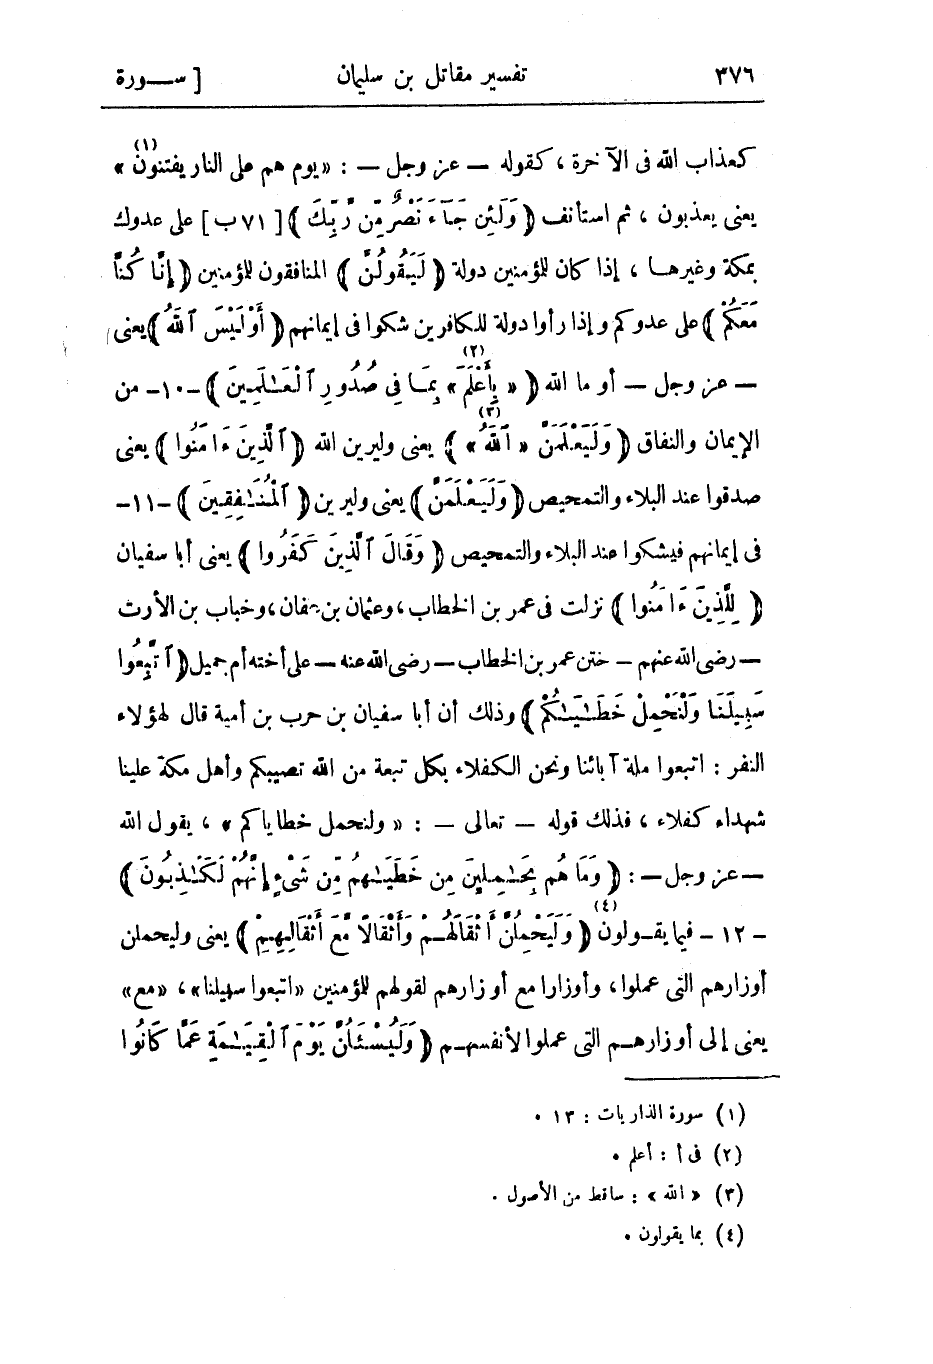 ٣٧٦ تفسير مقاتل بن سليمان [ ســورة
كعذاب الله فى الآخرة ، كقوله — عز وجل — : «يوم هم على النار يفتنون (١) »
يعنى يعذبون ، ثم استأنف ﴿ وَلَئِن جَآءَ نَصْرٌ مِّن رَّبِّكَ ﴾ [ ٧١ ب ] على عدوك
بمكة وغيرهــا ، إذا كان للؤمنين دولة ﴿ لَيَقُولُنَّ ﴾ المنافقون للؤمنين ﴿ إِنَّا كُنَّا
مَعَكُمْ ﴾ على عدوكم وإذا رأوا دولة للكافرين شكوا فى إيمانهم ﴿ أَوَلَيْسَ ٱللَّهُ ﴾ يعنى
— عز وجل — أو ما الله ﴿ « بِأَعْلَمَ (٢) » بِمَـا فِى صُدُورِ ٱلْعَـٰلَمِينَ ﴾ -١٠- من
الإيمان والنفاق ﴿ وَلَيَعْلَمَنَّ « ٱللَّهُ (٣) » ﴾ يعنى وليرين الله ﴿ ٱلَّذِينَ ءَامَنُوا ﴾ يعنى
صدقوا عند البلاء والتمحيص ﴿ وَلَيَعْلَمَنَّ ﴾ يعنى وليرين ﴿ ٱلْمُنَـٰفِقِينَ ﴾ -١١-
فى إيمانهم فيشكوا عند البلاء والتمحيص ﴿ وَقَالَ ٱلَّذِينَ كَفَرُوا ﴾ يعنى أبا سفيان
﴿ لِلَّذِينَ ءَامَنُوا ﴾ نزلت فى عمر بن الخطاب ، وعثمان بن عفان ، وخباب بن الأرت
— رضى الله عنهم — ختن عمر بن الخطاب — رضى الله عنه — على أخته أم جميل ﴿ ٱتَّبِعُوا
سَبِيلَنَا وَلْنَحْمِلْ خَطَـٰيَـٰكُمْ ﴾ وذلك أن أبا سفيان بن حرب بن أمية قال لهؤلاء
النفر : اتبعوا ملة آبائنا ونحن الكفلاء بكل تبعة من الله تصيبكم وأهل مكة علينا
شهداء كفلاء ، فذلك قوله — تعالى — : « ولنحمل خطاياكم » ، يقول الله
— عز وجل — : ﴿ وَمَا هُم بِحَـٰمِلِينَ مِن خَطَـٰيَـٰهُم مِّن شَىْءٍ إِنَّهُمْ لَكَـٰذِبُونَ ﴾
- ١٢ - فيما يقــولون (٤) ﴿ وَلَيَحْمِلُنَّ أَثْقَالَهُــمْ وَأَثْقَالاً مَّعَ أَثْقَالِهِمْ ﴾ يعنى وليحملن
أوزارهم التى عملوا ، وأوزارا مع أوزارهم لقولهم للؤمنين «اتبعوا سبيلنا» ، «مع»
يعنى إلى أوزارهــم التى عملوا لأنفسهــم ﴿ وَلَيُسْـَٔلُنَّ يَوْمَ ٱلْقِيَـٰمَةِ عَمَّا كَانُوا
(١) سورة الذاريات : ١٣ .
(٢) فى أ : أعلم .
(٣) « الله » : ساقط من الأصول .
(٤) بما يقولون .